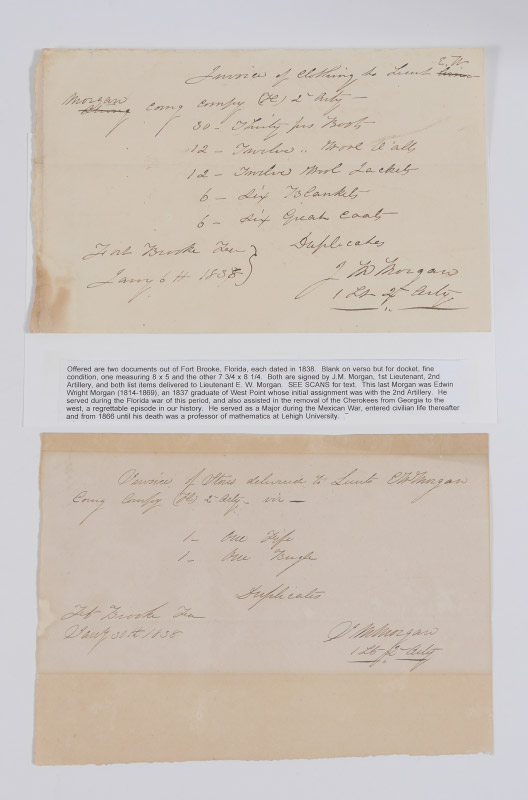 E. W.
Invoice of Clothing to Lieut
Morgan Comg Compy (H) 2d Arty —
30 - Thirty prs Boots
12 - Twelve " Wool O'alls
12 - Twelve Wool Jackets
6 - Six Blankets
6 - Six Great Coats
Duplicates
Fort Brooke
Jany 6th 1838
J M Morgan
1 Lt 2d Arty
Offered are two documents out of Fort Brooke, Florida, each dated in 1838. Blank on verso but for docket, fine
condition, one measuring 8 x 5 and the other 7 3/4 x 8 1/4. Both are signed by J.M. Morgan, 1st Lieutenant, 2nd
Artillery, and both list items delivered to Lieutenant E. W. Morgan. SEE SCANS for text. This last Morgan was Edwin
Wright Morgan (1814-1869), an 1837 graduate of West Point whose initial assignment was with the 2nd Artillery. He
served during the Florida war of this period, and also assisted in the removal of the Cherokees from Georgia to the
west, a regrettable episode in our history. He served as a Major during the Mexican War, entered civilian life thereafter
and from 1866 until his death was a professor of mathematics at Lehigh University.
Invoice of Stores delivered to Lieut E W Morgan
Comg Compy (H) 2d Arty - viz —
1 - One Fife
1 - One Bugle
Duplicates
Ft Brooke
Jany 31st 1838
J M Morgan
1 Lt 2d Arty